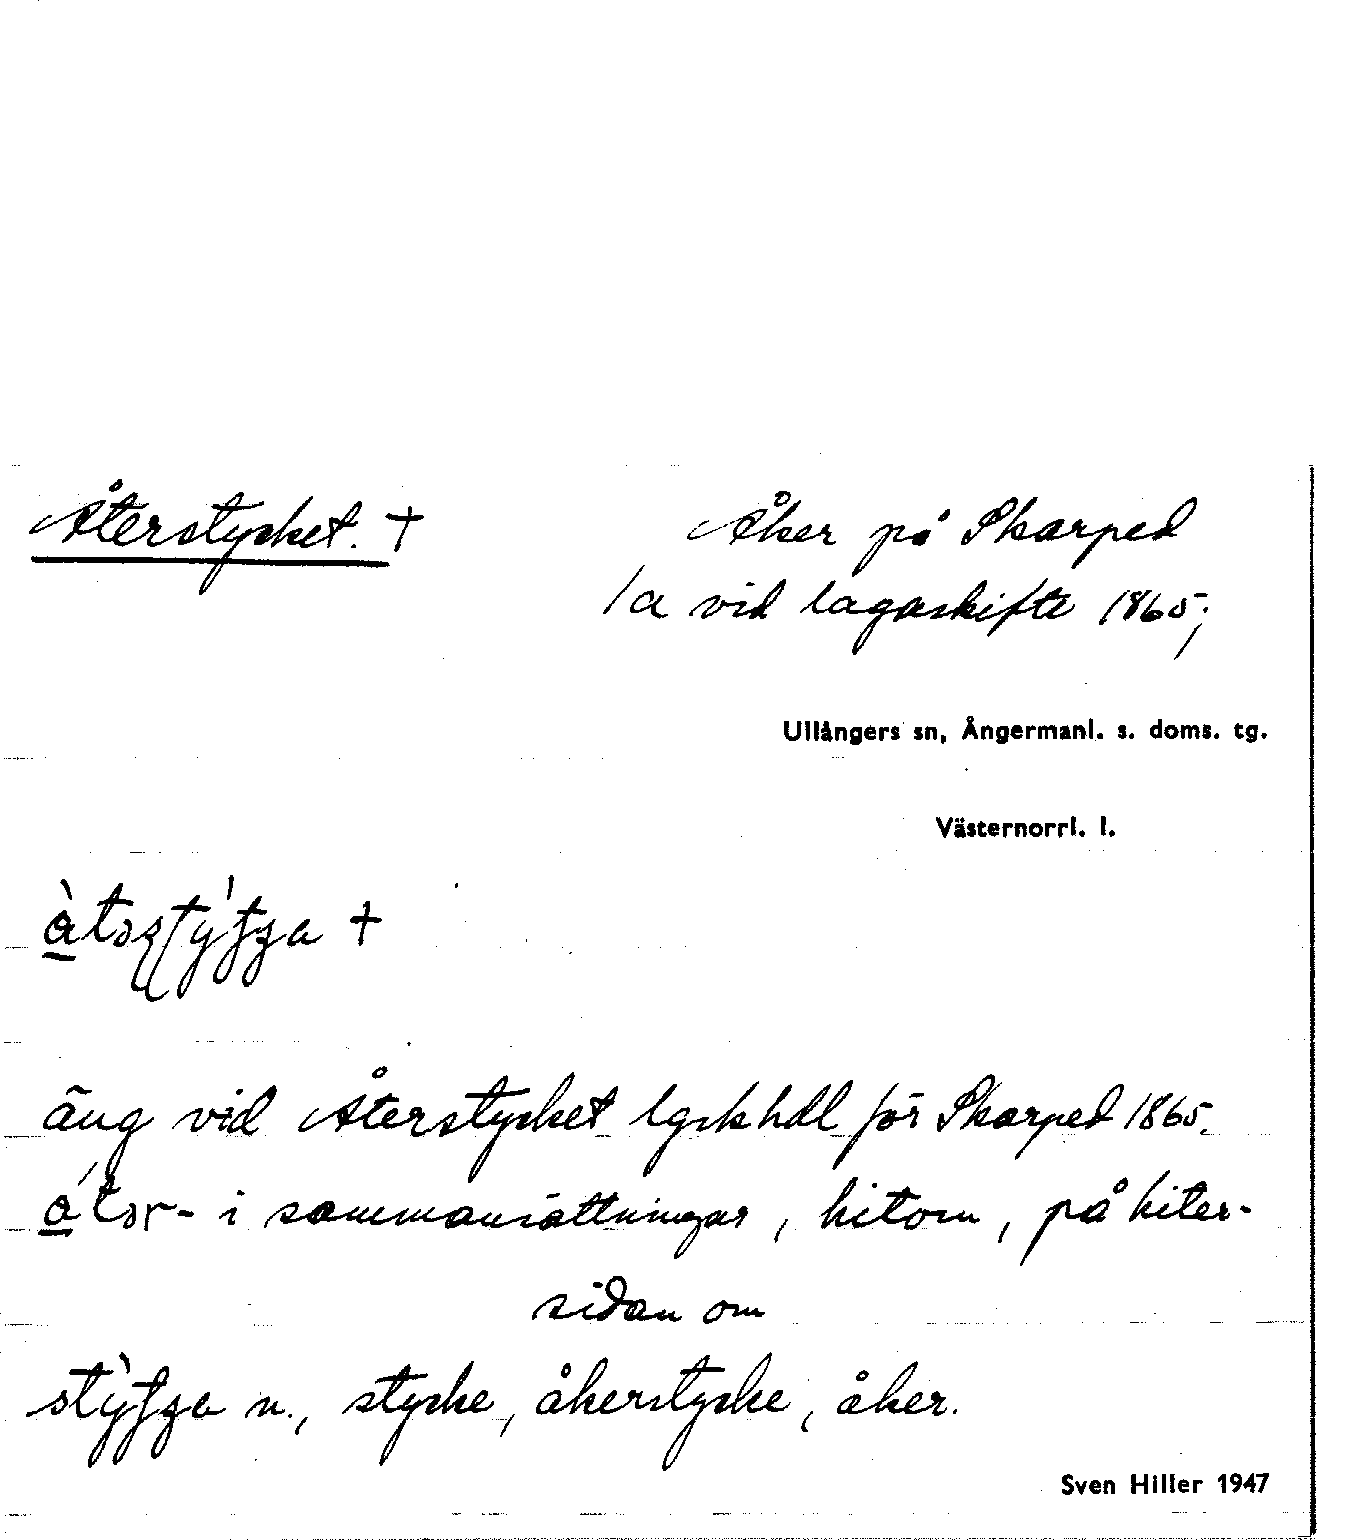 Återstycket. †
Åker på Skarped
1a vid lagaskifte 1865;
Ullångers sn, Ångermanl. s. doms. tg.
Västernorrl. l.
†
äng vid Återstycket lgskhdl för Skarped 1865.
i sammansättningar, hitom, på hiter-
sidan om
n., stycke, åkerstycke, åker.
Sven Hiller 1947